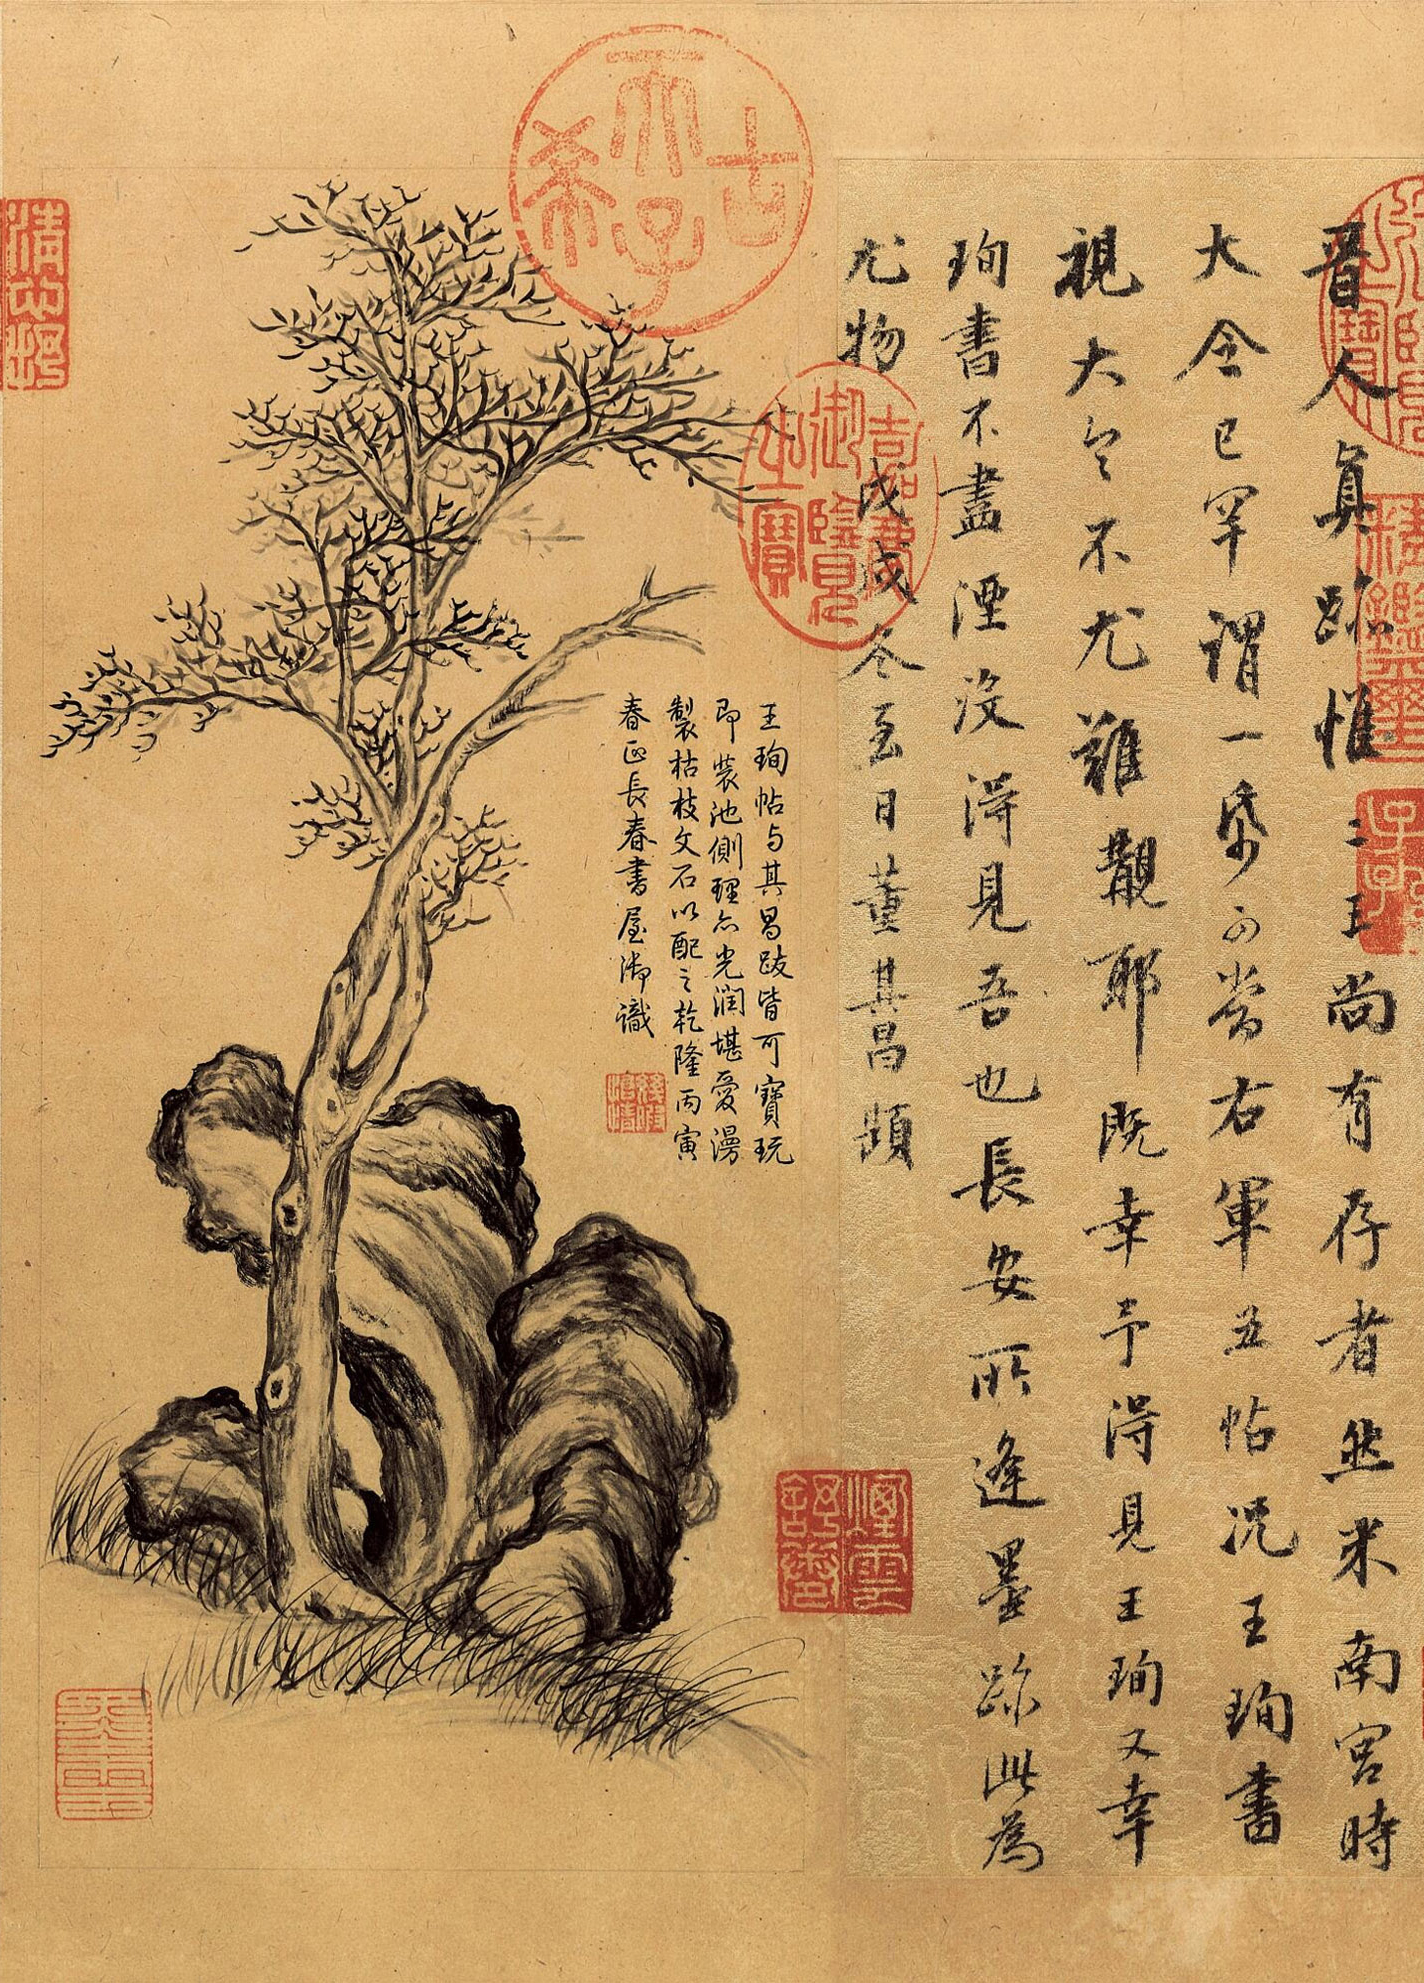 晉人真跡惟二王尚有存者然米南宮時
大令已罕謂一帋可當右軍五帖況王珣書
視大令不尤難覯耶既幸予得見王珣又幸
珣書不盡湮沒得見吾也長安所逢墨跡此為
尤物戊戌冬至日董其昌題
王珣帖与其昌跋皆可寶玩
即裝池側理亦光潤堪愛漫
製枯枝文石以配之乾隆丙寅
春正長春書屋御識
古
天子
希
嘉慶
御覽
之寶
煙雲